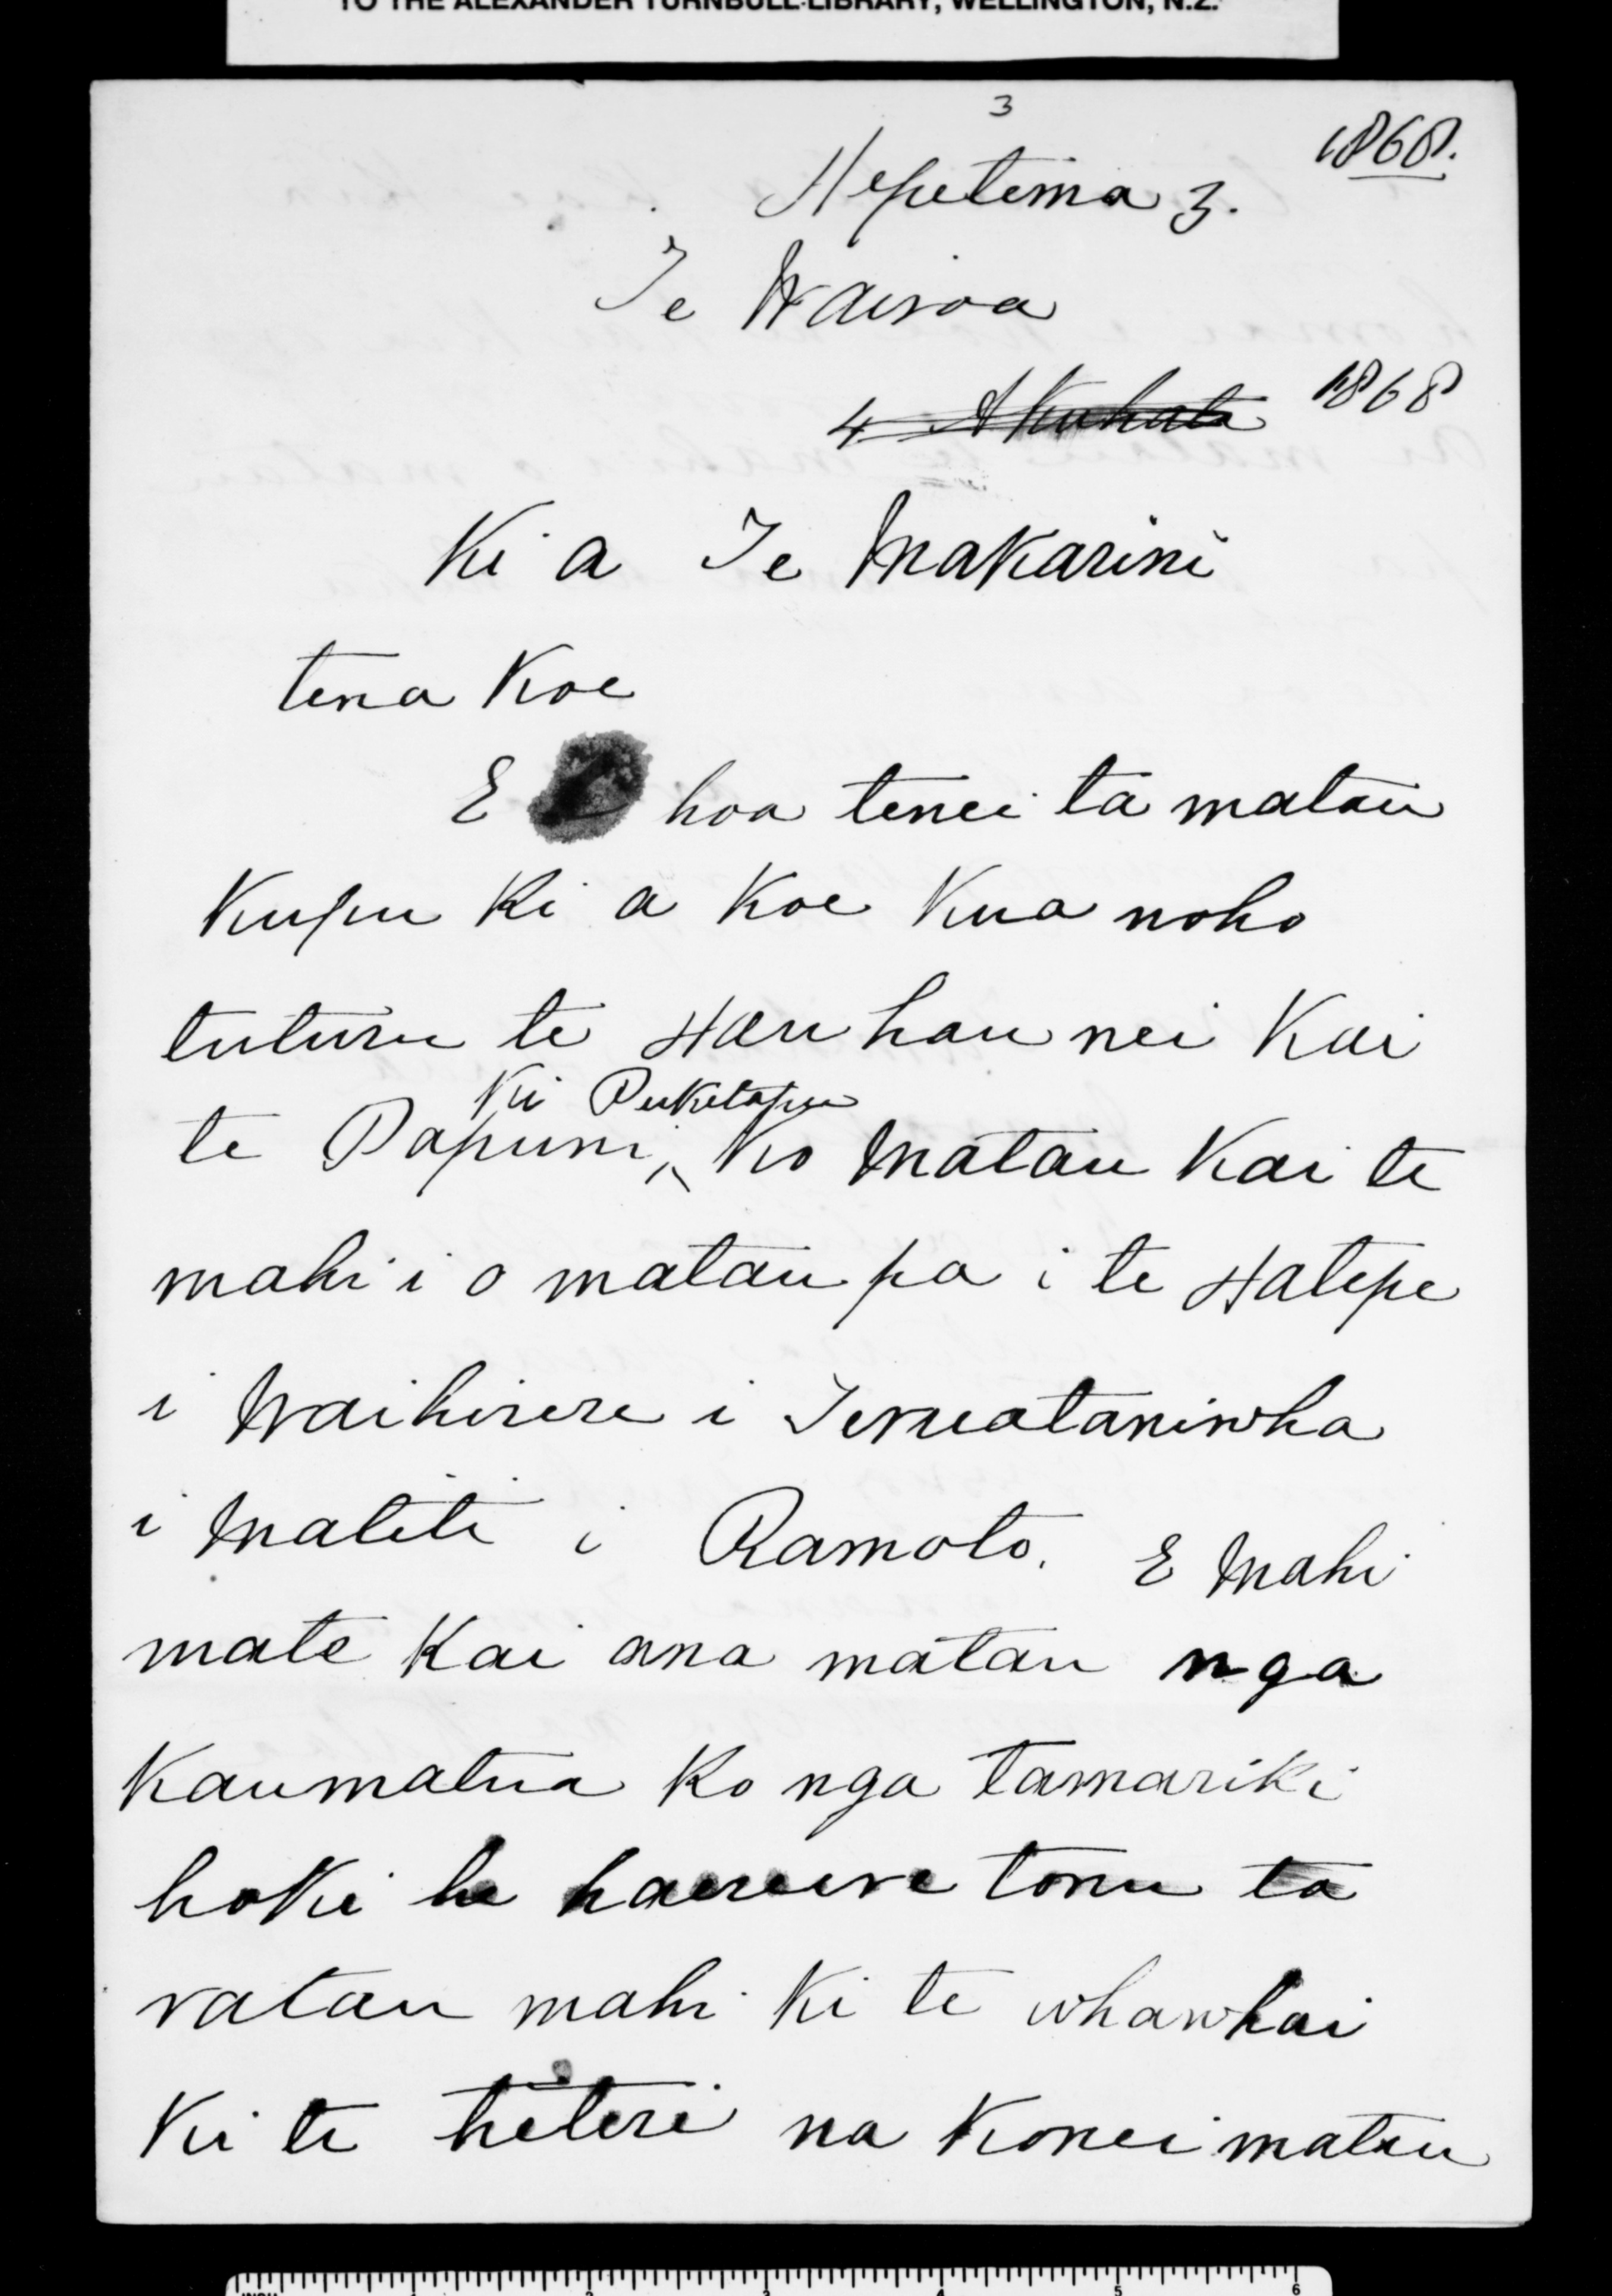 TO THE ALEXANDER TURNBULL LIBRARY, WELLINGTON, N.Z.
3
1868.
Hepetema 3.
Te Wairoa
4 Akuhata 1868
Ki a Te Makarini
tena Koe
E hoa tenei ta matau
Kupu Ki a Koe Kua noho
tuturu te Hau hau nei Kai
Ki Puketapu
te Papuni, Ko Matau Kai te
mahi i o matau pa i te Hatepe
i Waihirere i
i Matiti i Ramoto. E Mahi
mate Kai ana matau nga
Kaumatua Ko nga Tamariki
hoKi he haereere tonu ta
ratau mahi Ki te whawhai
Ki te teteri na Konei matau
INCH 1 2 3 4 5 6